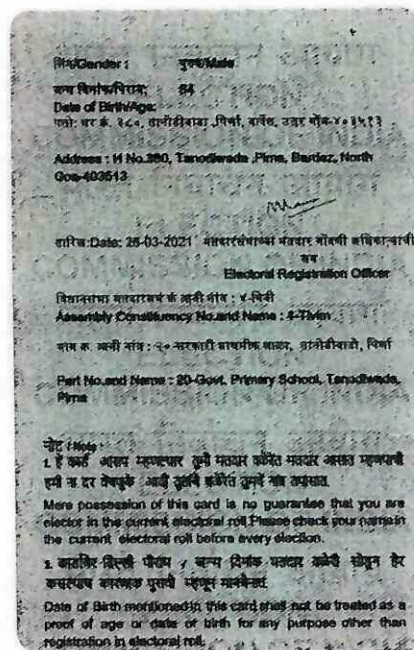 लिंग/Gender : पुरुष/Male
जन्म दिनांक/पिराय: 64
Date of Birth/Age:
पतो: घर क्रं. २८०, तानोडीवाडा, पिर्णा, बार्देस, उत्तर गोंय-४०३५१३
Address : H No.280, Tanodiwada ,Pirna, Bardez, North
Goa-403513
तारिख:Date: 25-03-2021 मतदारसंघाच्या मतदार नोंदणी अधिकाऱ्याची
सय
Electoral Registration Officer
विधानसभा मतदारसंघ क्रं आनी नांव : ४-थिवी
Assembly Constituency No.and Name : 4-Tivim
भाग क्रं. आनी नांव : २०-सरकारी प्राथमीक शाळा, तानोडीवाडो, पिर्णा
Part No.and Name : 20-Govt. Primary School, Tanodiwada,
Pirna
नोट / Note :
1. हें कार्ड आसप म्हणल्यार तुमी मतदार वळेरेंत मतदार आसात म्हणपाची
हमी ना दर वेंचणुके आदीं तुमचें वळेरेंत तुमचें नांव तपासात.
Mere possession of this card is no guarantee that you are
elector in the current electoral roll.Please check your name in
the current electoral roll before every election.
Date of Birth mentioned in this card shall not be treated as a
proof of age or date of birth for any purpose other than
registration in electoral roll.